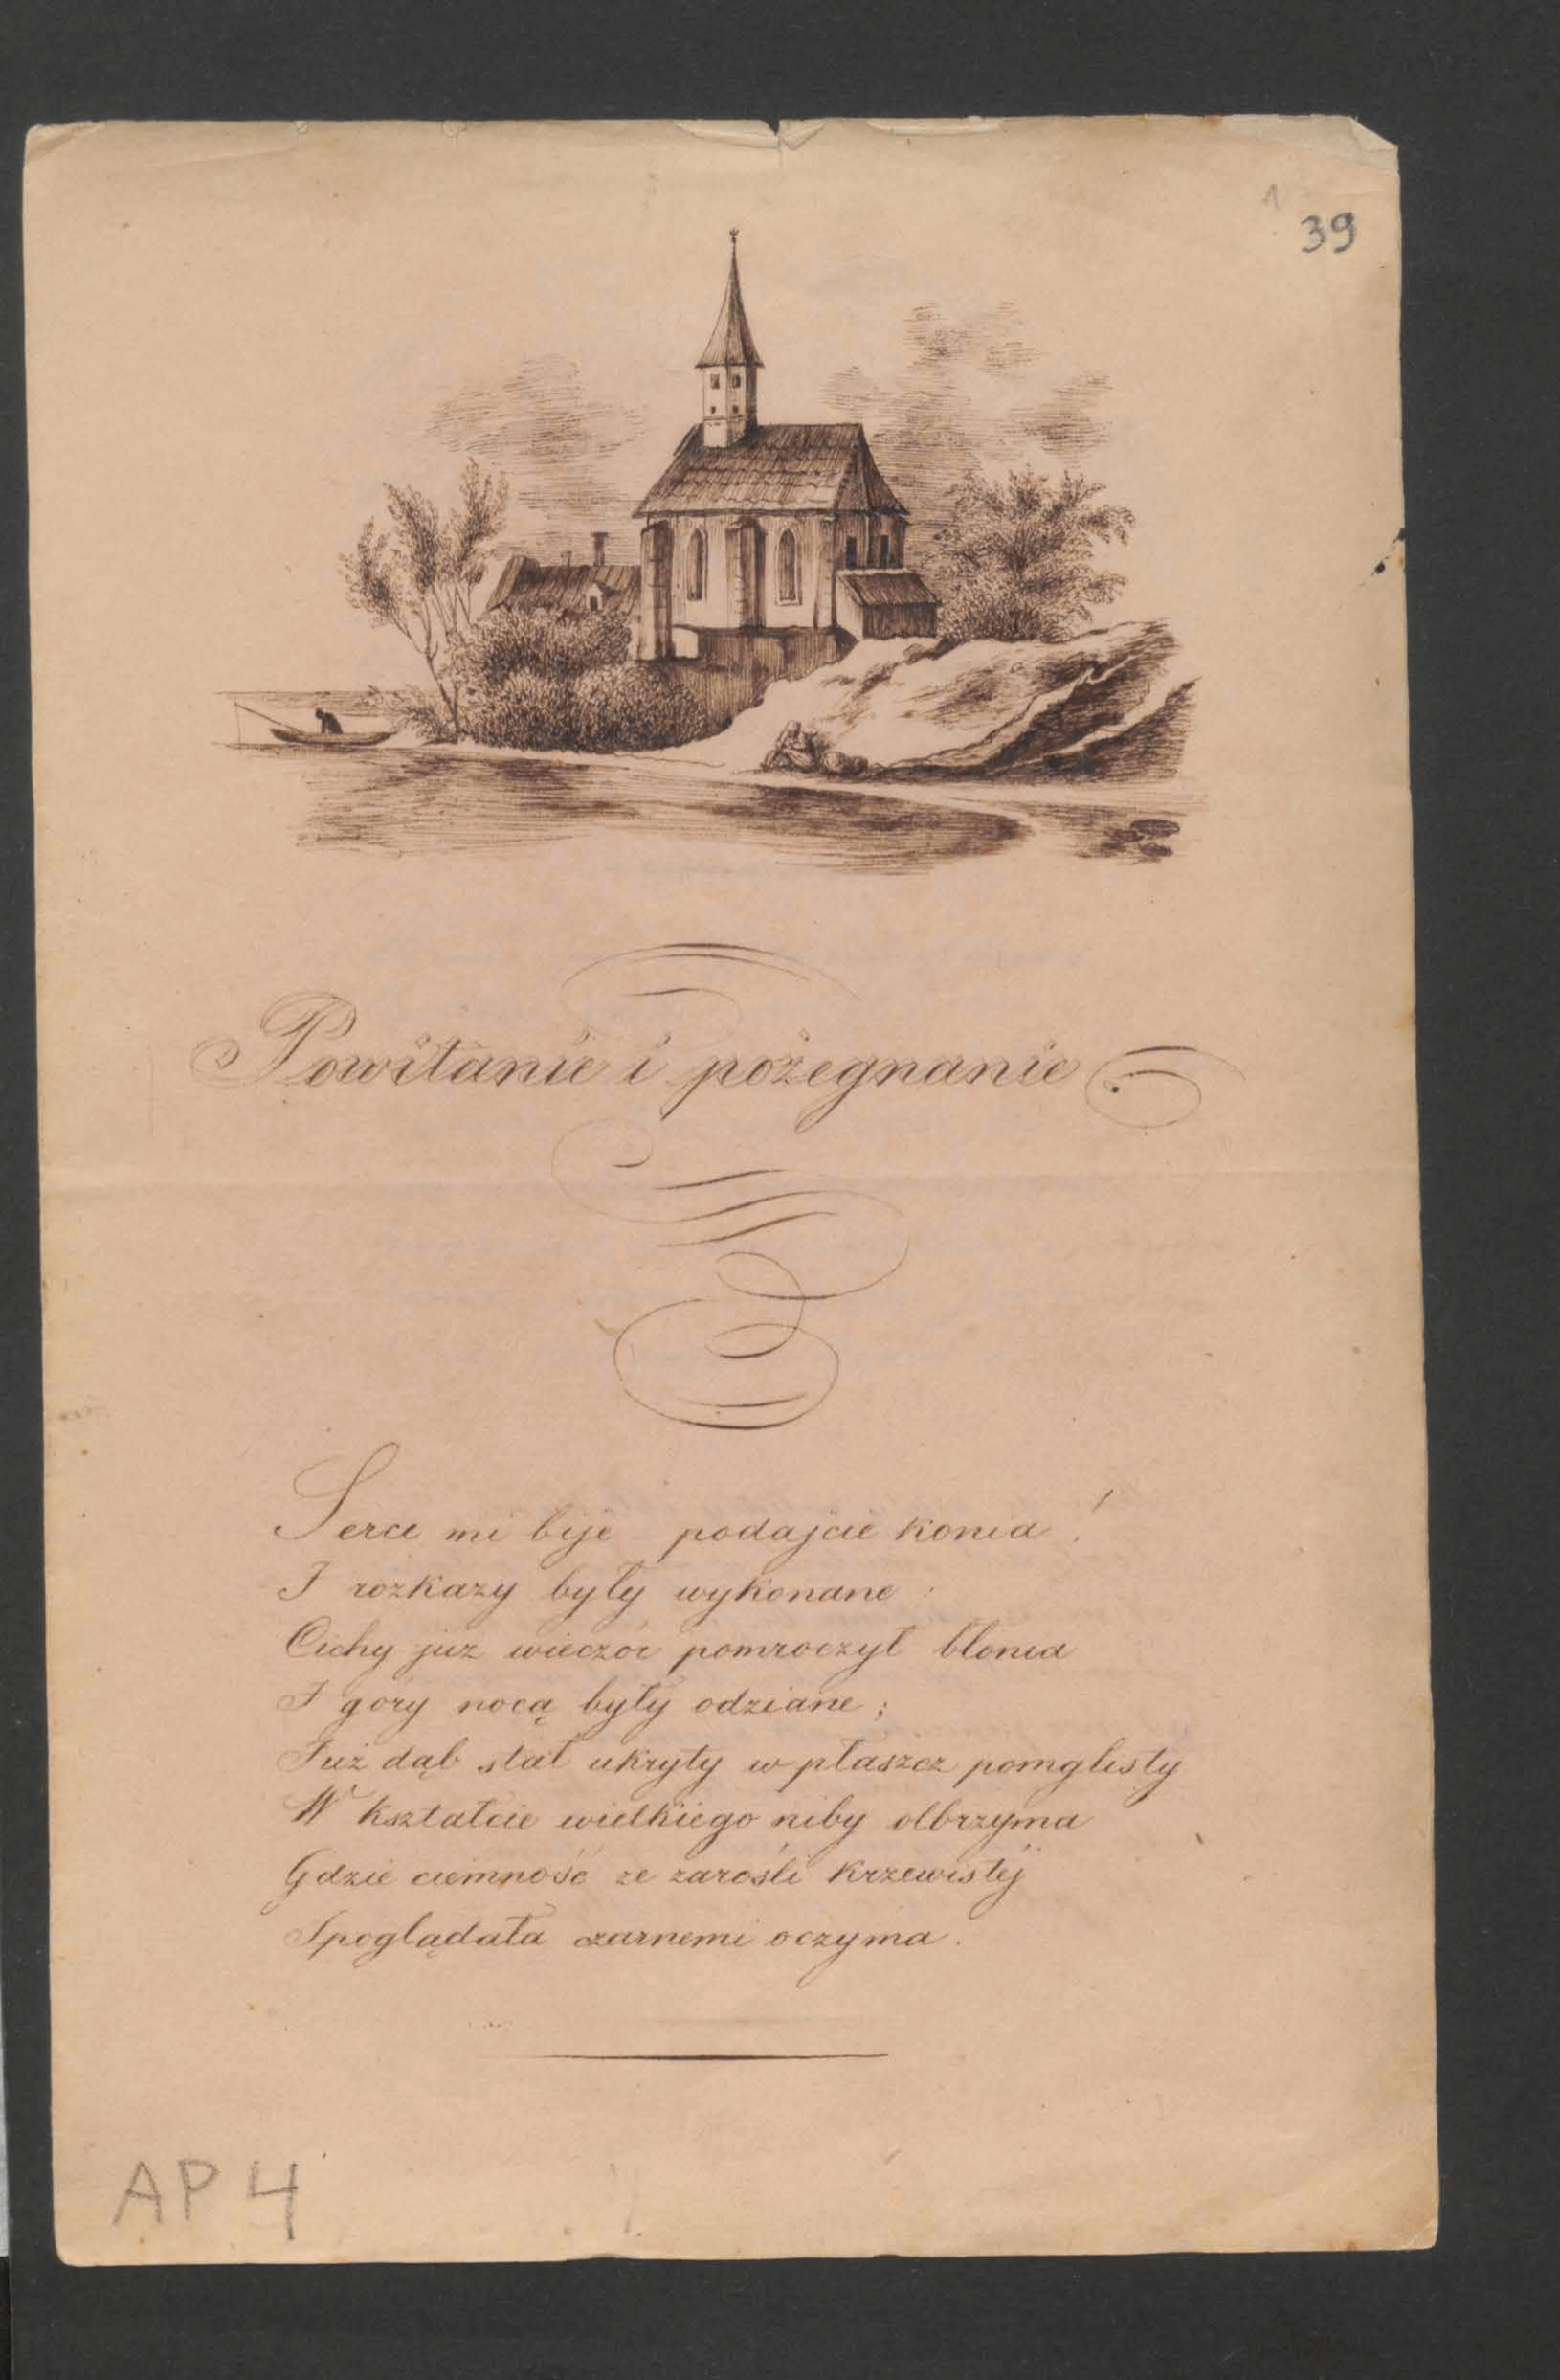 1
39
Powitanie i pożegnanie.
Serce mi bije podajcie konia!
I rozkazy były wykonane:
Cichy już wieczór pomroczył błonia
I góry nocą były odziane;
Już dąb stał ukryty w płaszcz pomglisty
W kształcie wielkiego niby olbrzyma
Gdzie ciemność ze zarośli krzewistéj
Spoglądała czarnemi oczyma.
AP 4